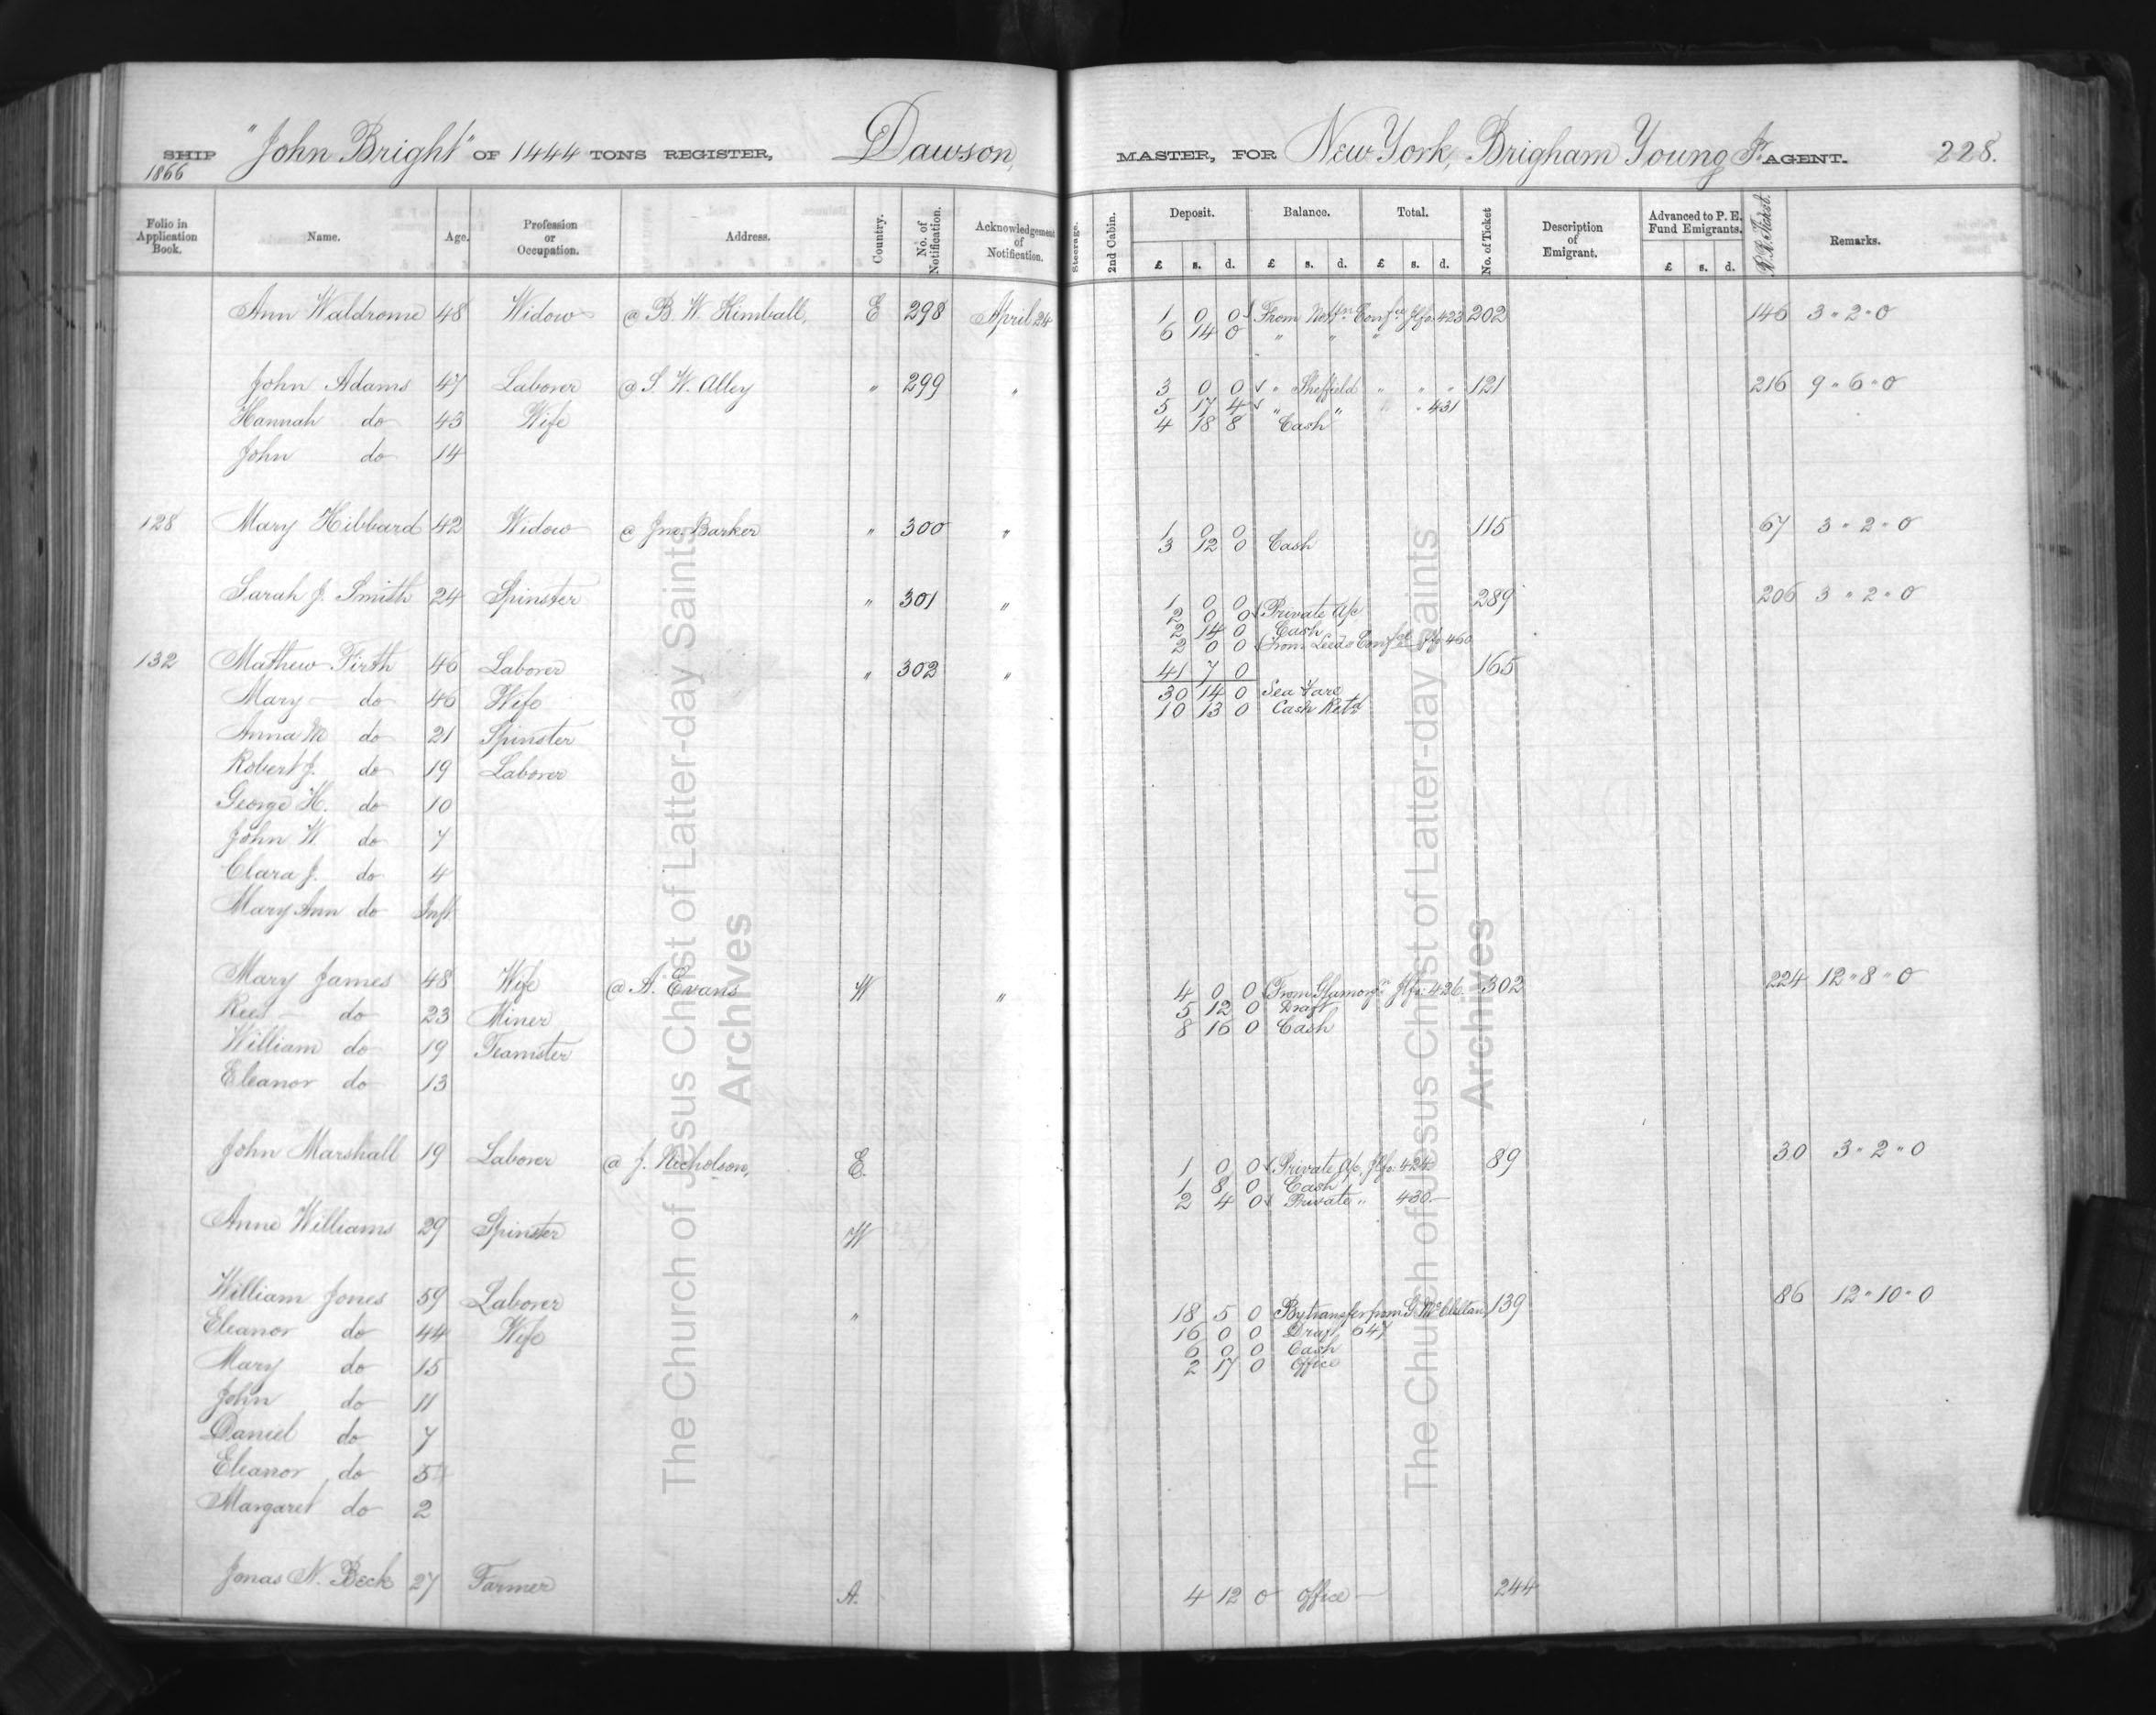 SHIP "John Bright" OF 1444 TONS REGISTER, Dawson, MASTER, FOR New York, Brigham Young Jr AGENT. 228.
1866
Folio in Application Book. Name. Age. Profession or Occupation. Address. Country. No. of Notification. Acknowledgement of Notification. Steerage. 2nd Cabin. Deposit. Balance. Total. No. of Ticket Description of Emigrant. Advanced to P. E. Fund Emigrants. R.R. Ticket. Remarks.
£ s. d. £ s. d. £ s. d. £ s. d.
Ann Waldrome 48 Widow @ B. W. Kimball, E 298 April 24 1 0 0 From Nottm Confce Jlfo 423 202 146 3 " 2 " 0
6 14 0 " " "
John Adams 47 Laborer @ S. W. Alley " 299 " 3 0 0 " Sheffield " " " 121 216 9 " 6 " 0
5 17 4 " " " " 431
Hannah do 43 Wife 4 18 8 Cash
John do 14
128 Mary Hibbard 42 Widow @ Jno. Barker " 300 " 1 0 0 115 67 3 " 2 " 0
3 12 0 Cash
Sarah J. Smith 24 Spinster " 301 " 1 0 0 289 206 3 " 2 " 0
2 0 0 Private A/c
2 14 0 Cash
2 0 0 From Leeds Confce Jlfo 460
132 Mathew Firth 46 Laborer " 302 " 41 7 0 165
Mary do 46 Wife 30 14 0 Sea Fare
10 13 0 Cash Retd
Anna M do 21 Spinster
Robert J. do 19 Laborer
George H. do 10
John W. do 7
Clara J. do 4
Mary Ann do Inft
Mary James 48 Wife @ A. Evans W " 4 0 0 From Glamorgn Jlfo: 426 302 224 12 " 8 " 0
5 12 0 Draft
Rees do 23 Miner 8 16 0 Cash
William do 19 Teamster
Eleanor do 13
John Marshall 19 Laborer @ J. Nicholson, E. 1 0 0 Private A/c, Jlfo: 424 89 30 3 " 2 " 0
1 8 0 Cash
2 4 0 Private " 430
Anne Williams 29 Spinster W
William Jones 59 Laborer " 18 5 0 By transfer from G. McClellan 139 86 12 " 10 " 0
Eleanor do 44 Wife 16 0 0 Draft 647
6 0 0 Cash
Mary do 15 2 17 0 Office
John do 11
Daniel do 7
Eleanor do 5
Margaret do 2
Jonas N. Beck 27 Farmer A. 4 12 0 Office 244
The Church of Jesus Christ of Latter-day Saints
Archives
The Church of Jesus Christ of Latter-day Saints
Archives